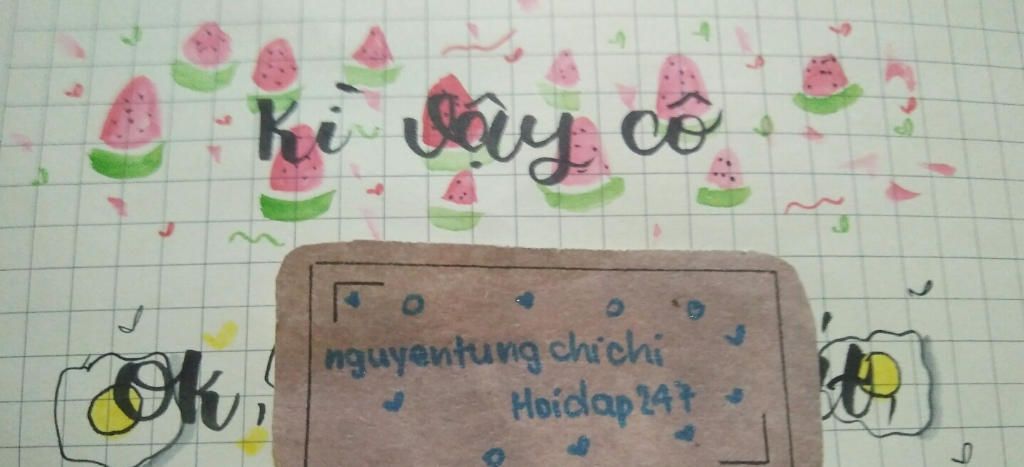 Kì vậy cô
Ok,
nguyentungchichi
Hoidap247